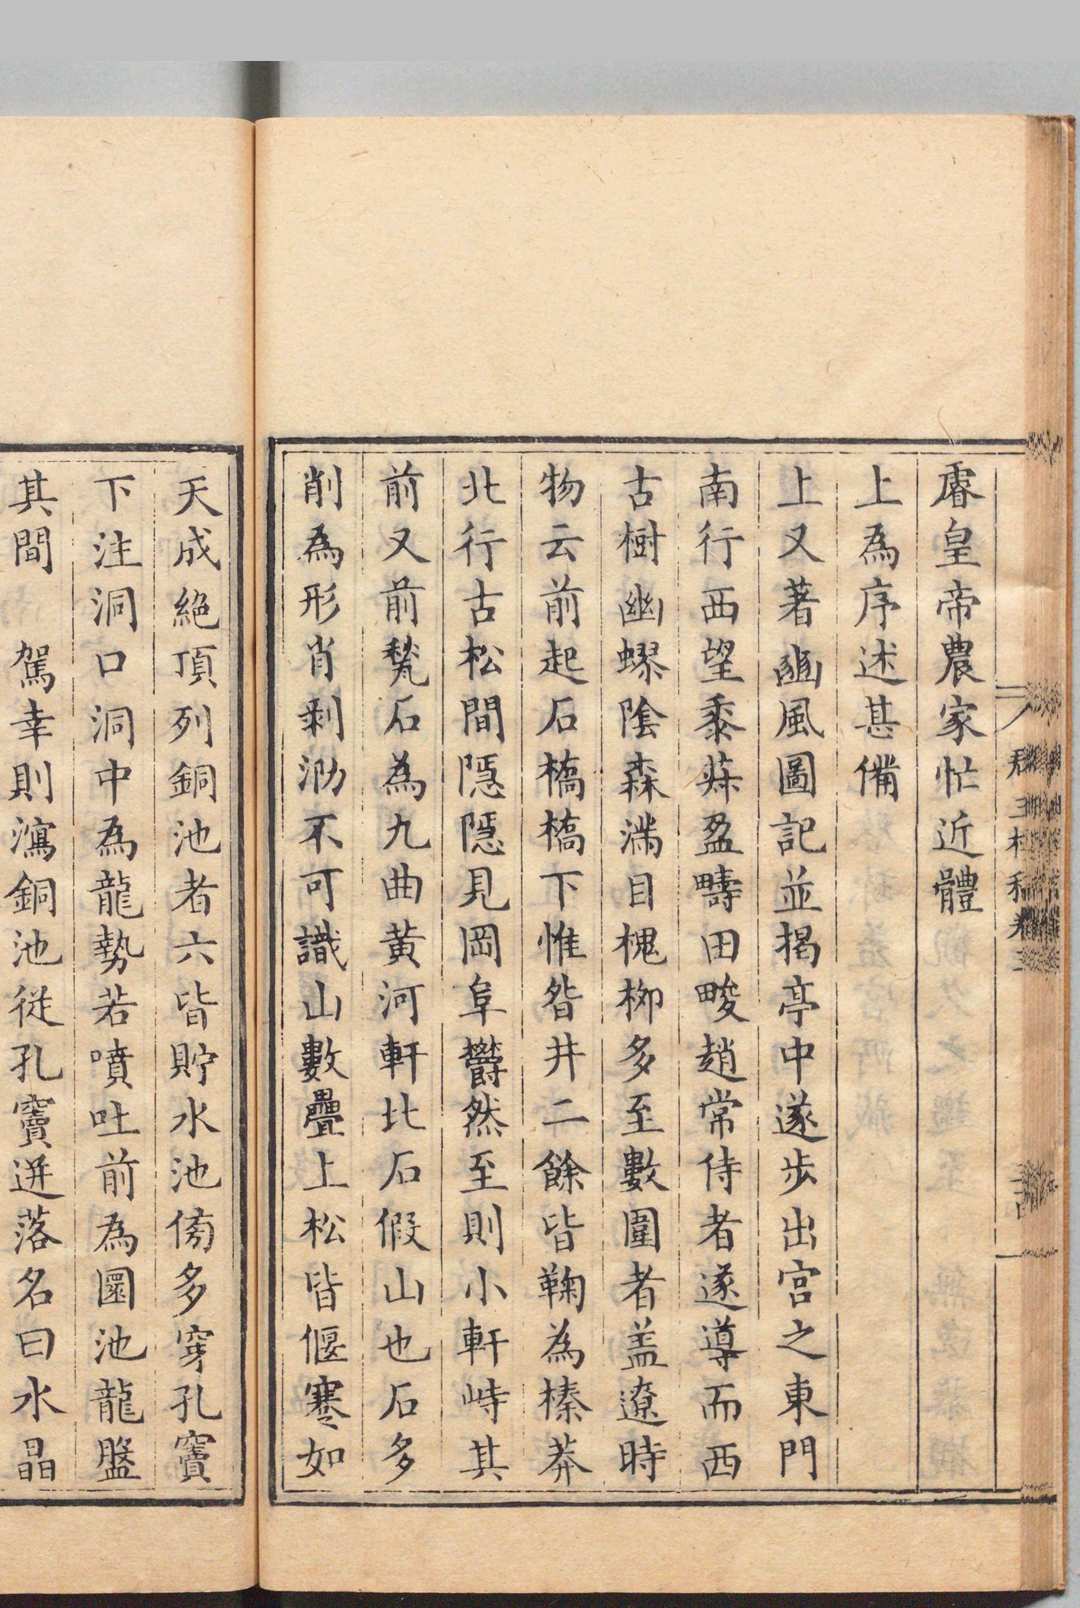 睿皇帝農家忙近體
上為序述甚備
上又著豳風圖記並揭亭中遂步出宮之東門
南行西望黍蔴盈疇田畯趙常侍者遂導而西
古樹幽蟉陰森滿目槐柳多至數圍者盖遼時
物云前起石橋橋下惟眢井二餘皆鞠為榛莽
北行古松間隱隱見岡阜欝然至則小軒峙其
前又前甃石為九曲黄河軒北石假山也石多
削為形肖剥泐不可識山數疊上松皆偃蹇如
天成絕頂列銅池者六皆貯水池傍多穿孔竇
下注洞口洞中為龍勢若噴吐前為圓池龍盤
其間 駕幸則瀉銅池從孔竇迸落名曰水晶